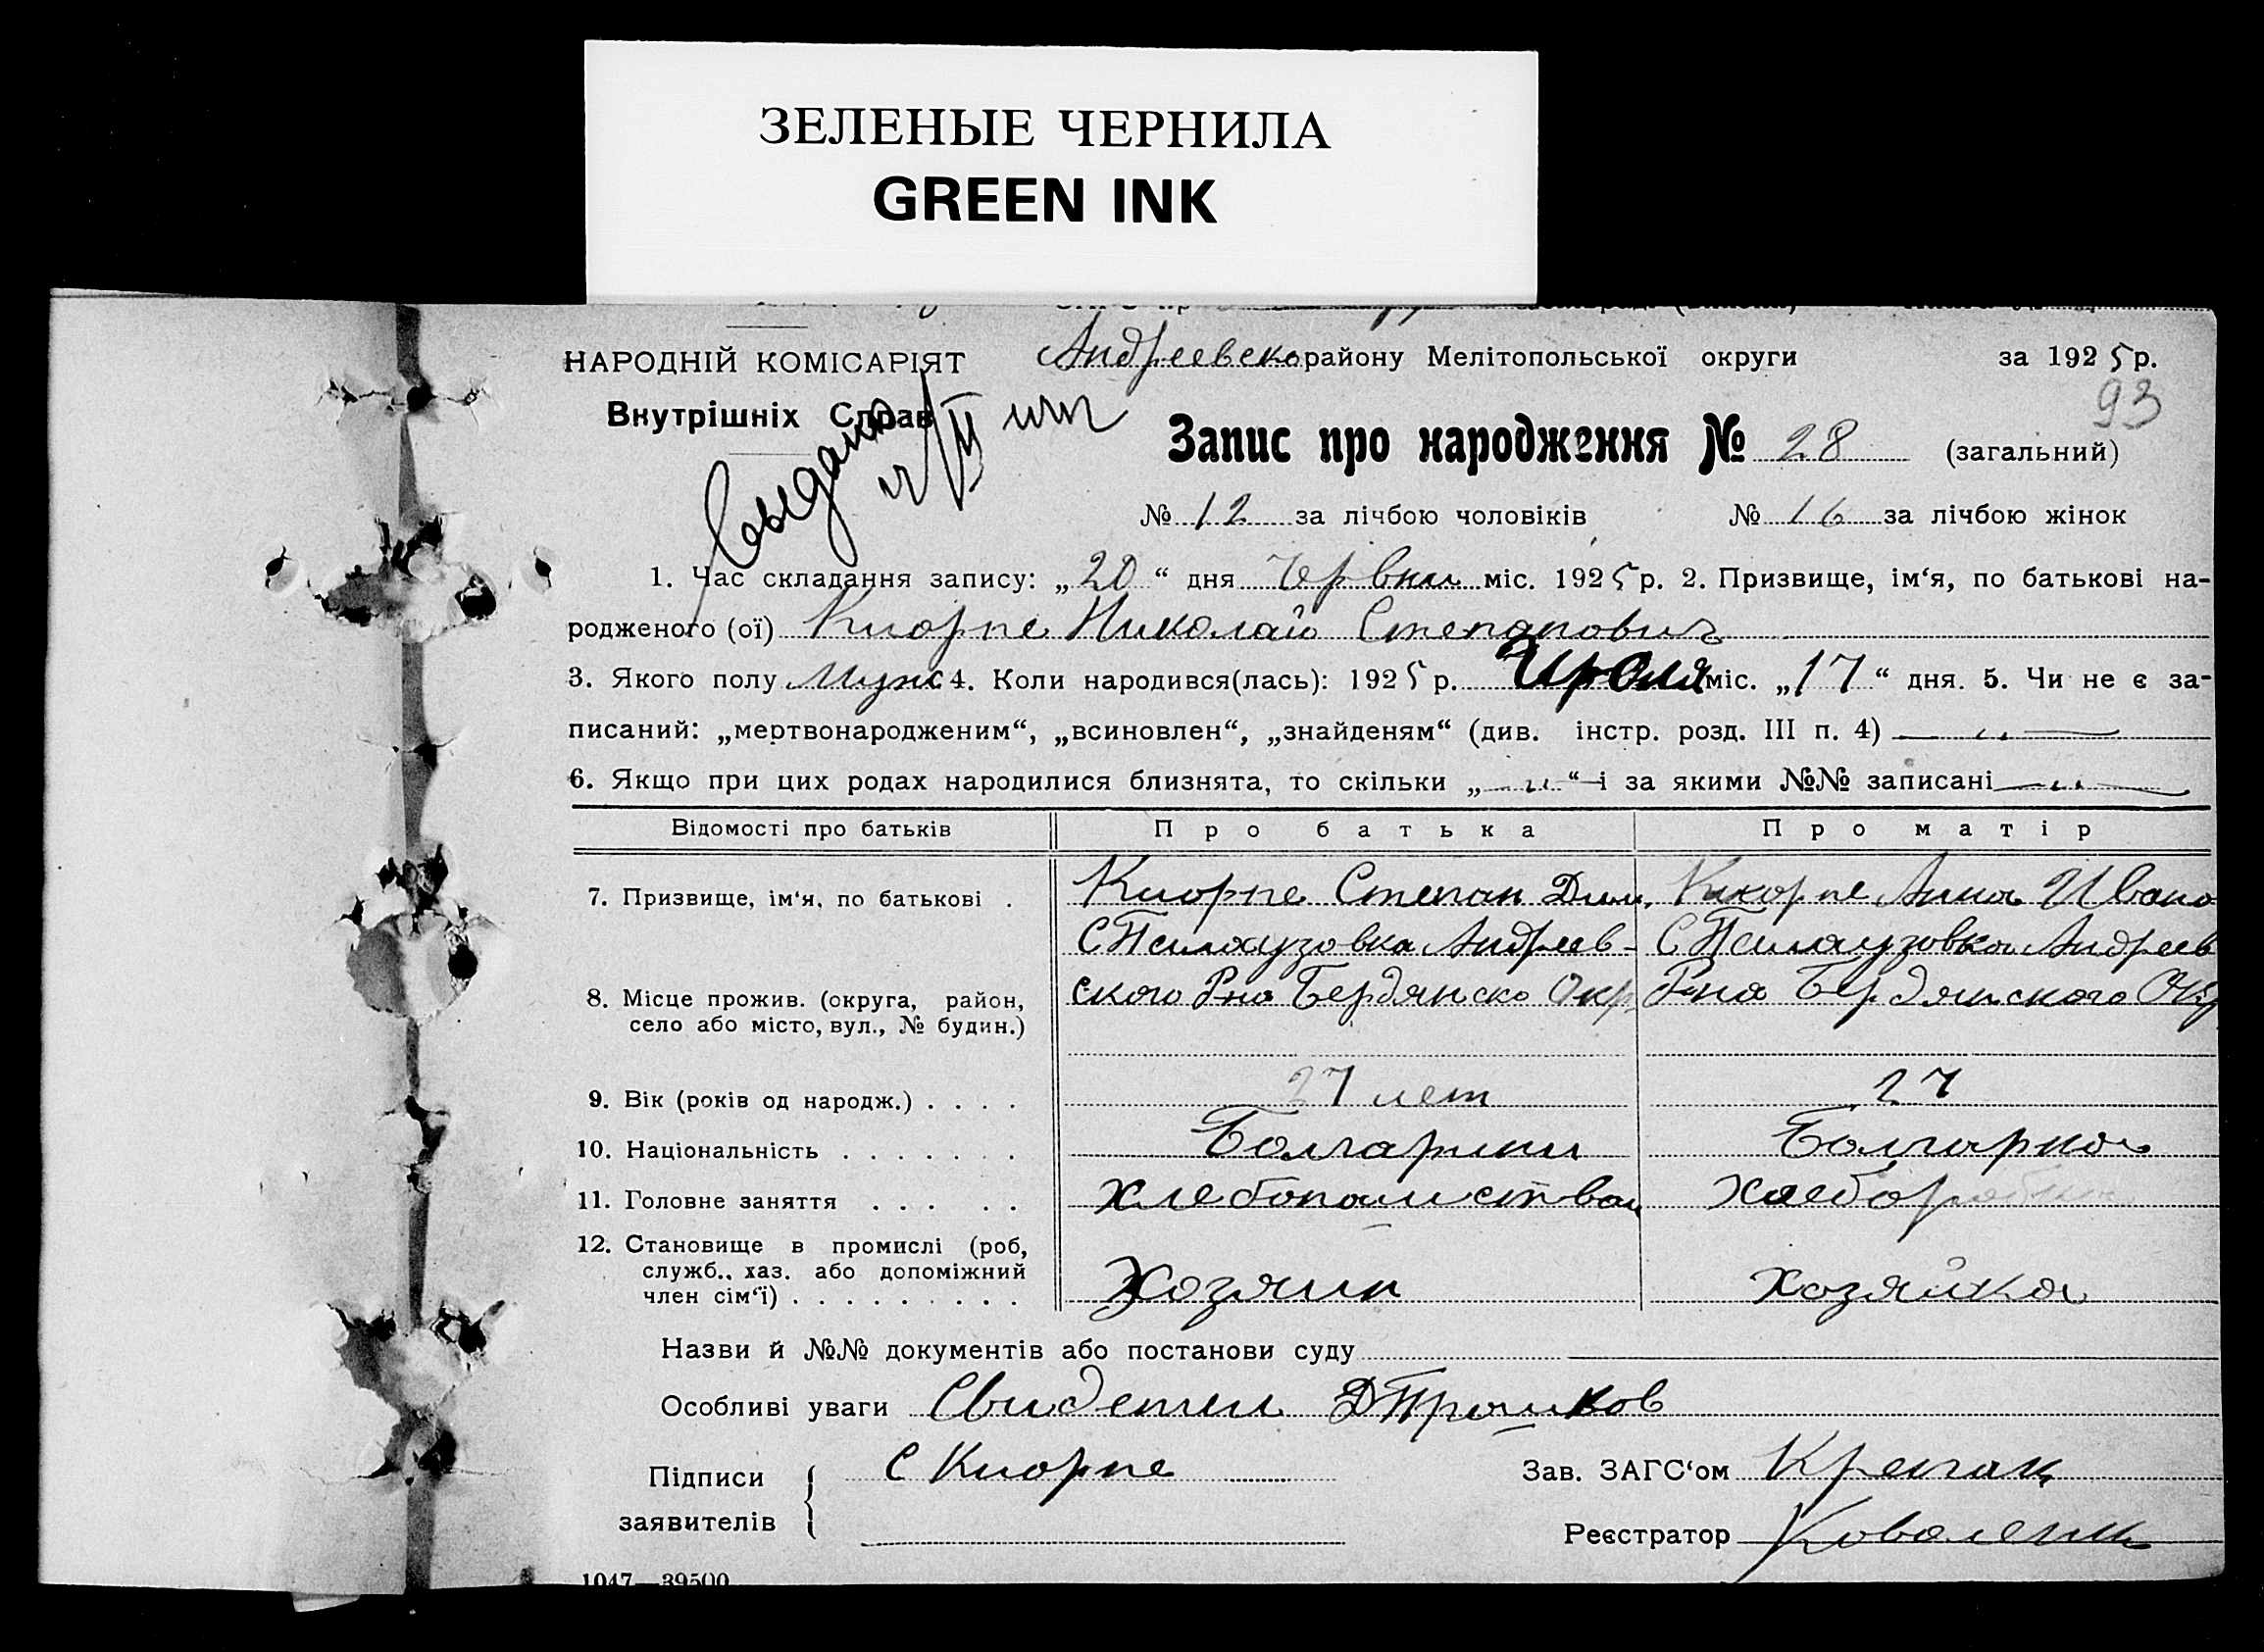 ЗЕЛЕНЫЕ ЧЕРНИЛА
GREEN INK
НАРОДНІЙ КОМІСАРІЯТ
Внутрішніх Справ
Андреевско району Мелітопольської округи за 1925 р.
93
Запис про народження № 28 (загальний)
№ 12 за лічбою чоловіків № 16 за лічбою жінок
1. Час складання запису: „20“ дня Червня міс. 1925 р. 2. Призвище, ім‘я, по батькові на-
родженого (ої) Киорпе Николай Степанович
3. Якого полу Муж 4. Коли народився(лась): 1925 р. міс. „17“ дня. 5. Чи не є за-
писаний: „мертвонародженим“, „всиновлен“, „знайденям“ (див. інстр. розд. III п. 4) — „ —
6. Якщо при цих родах народилися близнята, то скільки „— „ “ і за якими №№ записані — „ —
Відомості про батьків Про батька Про матір
7. Призвище, ім‘я, по батькові . Киорпе Степан Дим. Киорпе Анна Ивано
С Палаузовка Андреев- С Палаузовка Андреев
8. Місце прожив. (округа, район, ского Р-на Бердянско Окр. Р-на Бердянского Окр
село або місто, вул., № будин.)
9. Вік (років од народж.) . . . . 27 лет 27
10. Національність . . . . . . . Болгарин Болгарка
11. Головне заняття . . . . . хлебопашество
12. Становище в промислі (роб,
служб., хаз. або допоміжний
член сім‘ї) . . . . . . . . . Хозяин Хозяйка
Назви й №№ документів або постанови суду
Особливі уваги Свидетели Д Трошков
Підписи С Киорпе Зав. ЗАГС‘ом
заявителів
Реєстратор Коваленк
1047—39500